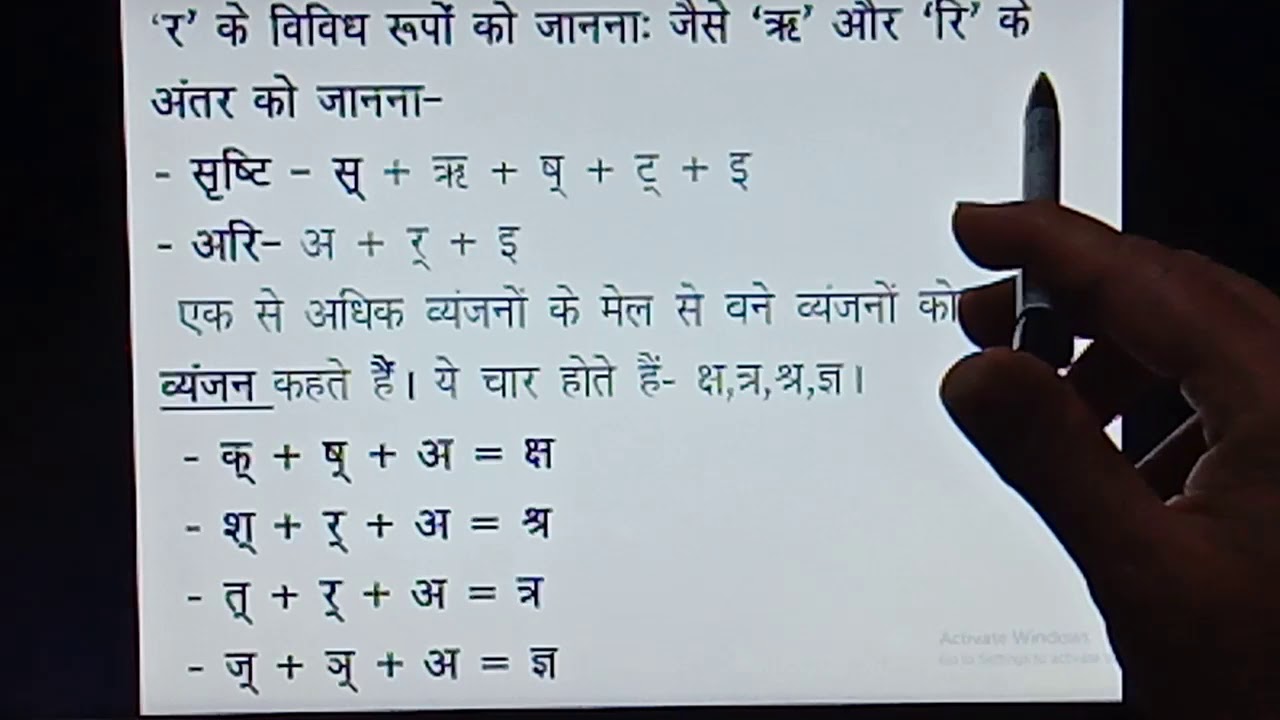 ‘र’ के विविध रूपों को जाननाः जैसे ‘ऋ’ और ‘रि’ के
अंतर को जानना-
- सृष्टि - स् + ऋ + ष् + ट् + इ
- अरि- अ + र् + इ
एक से अधिक व्यंजनों के मेल से बने व्यंजनों को
व्यंजन कहते हैं। ये चार होते हैं- क्ष,त्र,श्र,ज्ञ।
- क् + ष् + अ = क्ष
- श् + र् + अ = श्र
- त् + र् + अ = त्र
- ज् + ञ् + अ = ज्ञ
Activate Windows
Go to Settings to activate